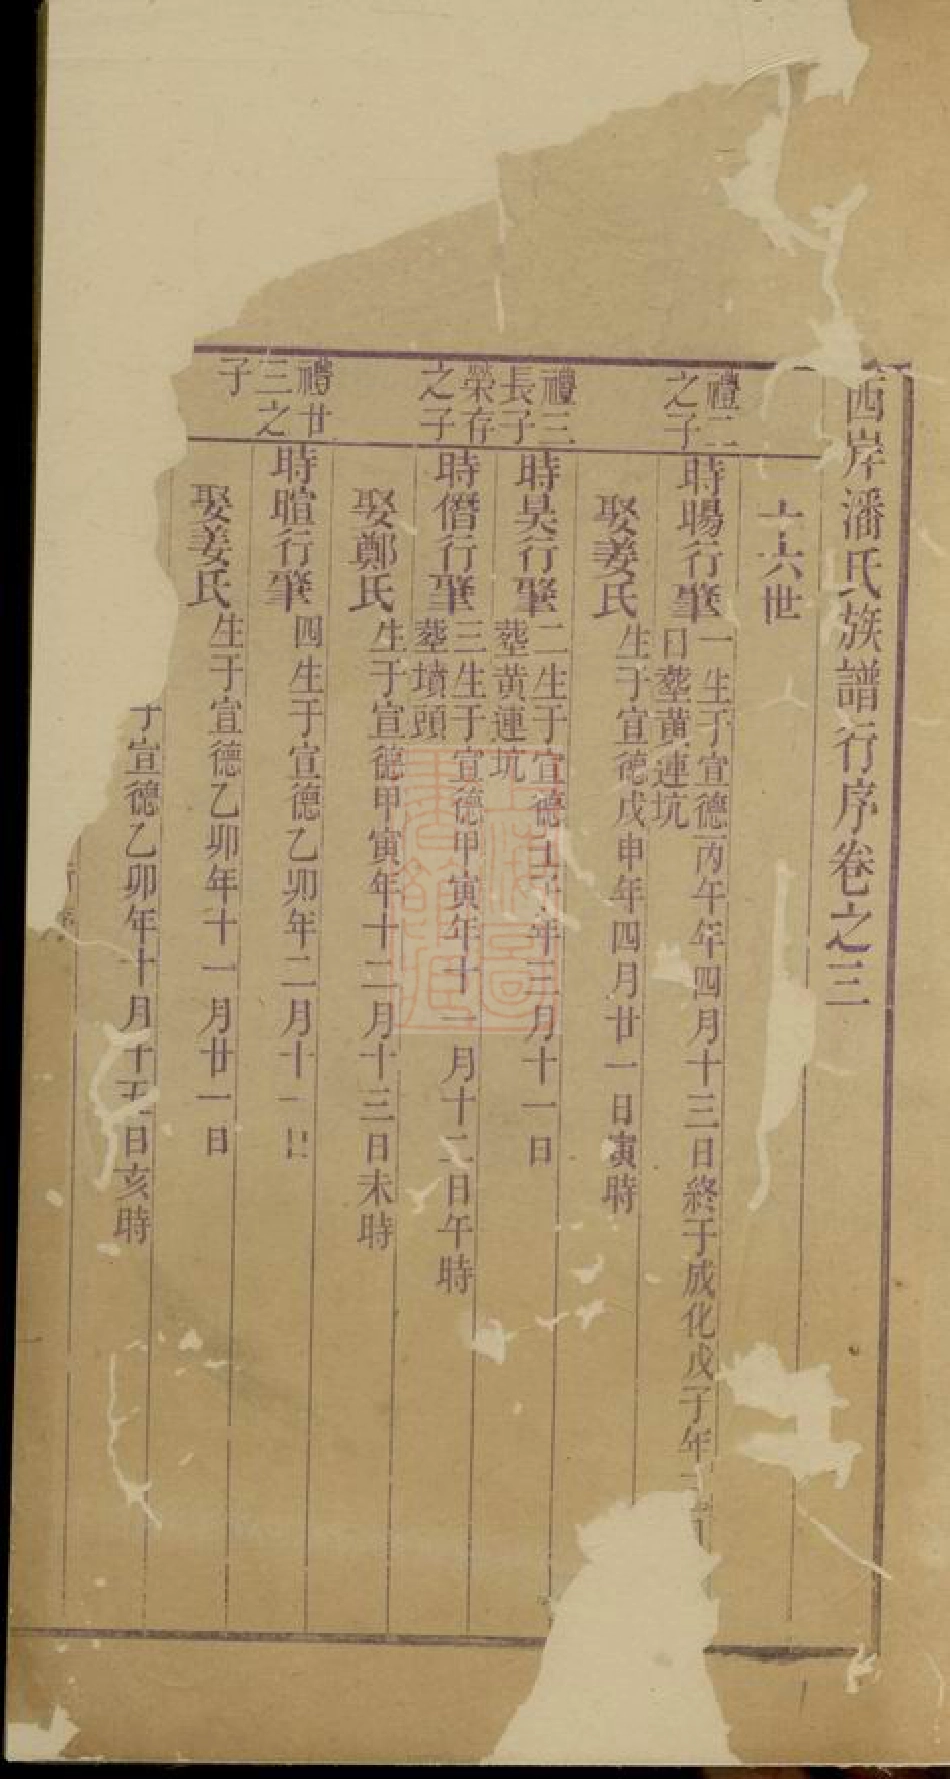 西岸潘氏族譜行序卷之三
十六世
禮二之子
時暘行肇一生于宣德丙午年四月十三日終于成化戊子年
日塟黃連坑
娶姜氏生于宣德戊申年四月廿一日寅時
禮三長子
時昊行肇二生于宣德壬子年三月十一日
塟黃連坑
榮存之子
時僭行肇三生于宣德甲寅年十一月十二日午時
塟墳頭
娶鄭氏生于宣德甲寅年十二月十三日未時
禮廿三之子
時暄行肇四生于宣德乙卯年二月十一日
娶姜氏生于宣德乙卯年十一月廿一日
于宣德乙卯年十月十五日亥時